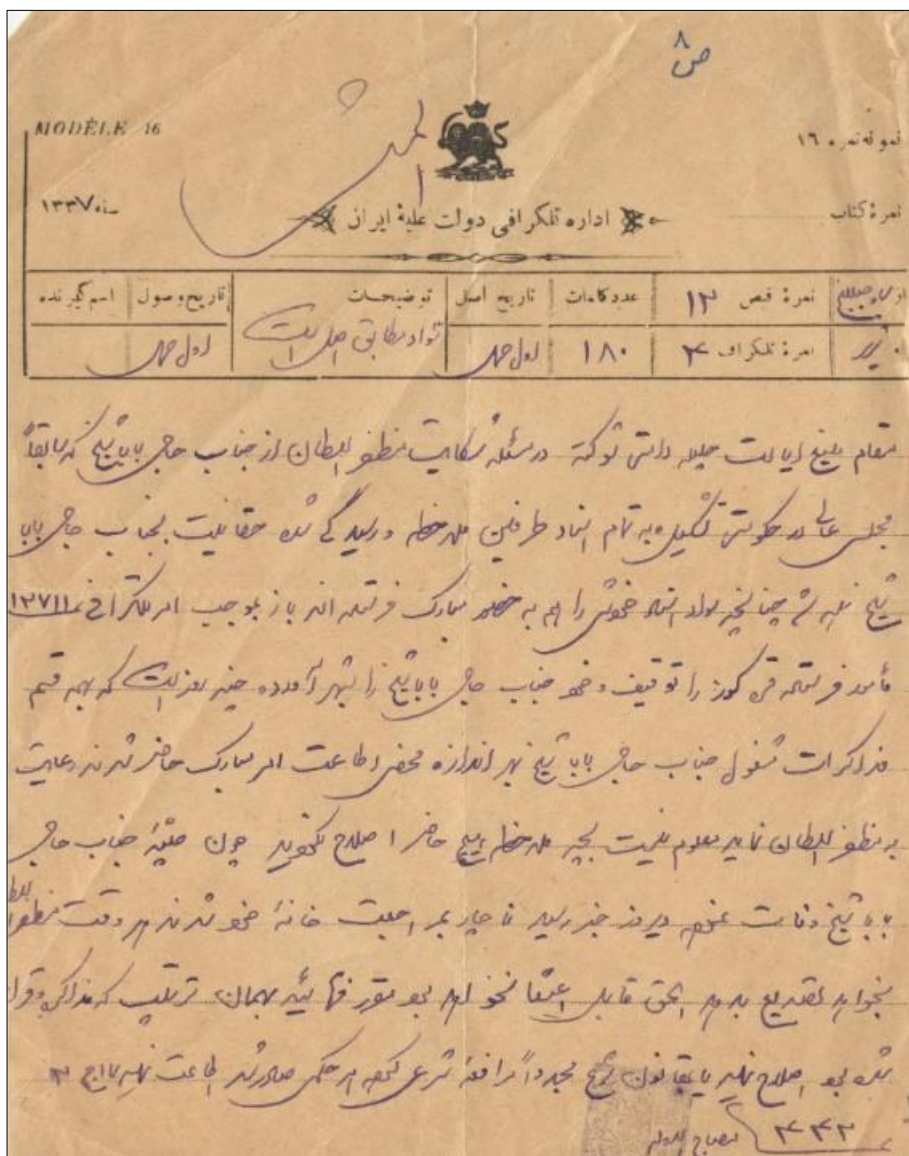 ص ۸
MODÈLE 16
نمونه نمره ۱۶
سنه ۱۳۳۷
نمرهٔ کتاب
اداره تلگرافی دولت علیهٔ ایران
از نمرهٔ قبض ۱۲ عدد کلمات تاریخ اصل توضیحات تاریخ وصول اسم گیرنده
نمرهٔ تلگراف ۴ ۱۸۰ اول حمل سواد مطابق اصل است اول حمل
مقام منیع ایالت جلیله دامت شوکته در مسئله شکایت مظفرالسلطان از جناب حاجی باباشیخ که سابقاً
مجلس عالی در حکومتی تشکیل به تمام اسناد طرفین ملاحظه و رسیدگی شده حقانیت بجناب حاجی بابا
شیخ چنانچه سواد اسناد خودش را هم به حضور مبارک فرستاده اند باز بموجب امر تلگرافی ۱۲۷۱۱
مأمور فرستاده را توقیف و خود جناب حاجی باباشیخ را بشهر آورده چند روز است که بهمه قسم
مذاکرات مشغول جناب حاجی باباشیخ بهر اندازه محض اطاعت امر مبارک حاضر شدند رعایت
به مظفرالسلطان نماید معلوم نیست بچه ملاحظه هیچ حاضر اصلاح نگردید چون جناب حاجی
باباشیخ وفات نموده دیروز خبر رسید ناچار بمراجعت خانهٔ خود شدند هر وقت مظفرالسلطان
بخواهد تصدیع بدهد الحق قابل اعتنا نخواهد بود مقرر فرمائید بهمان ترتیب که مذاکره و قرار
شده بود اصلاح نمایند یا بقانون شرع مجدداً مرافعهٔ شرعی نموده هر حکمی صادر شد اطاعت نمایند ۲
۴۴۲